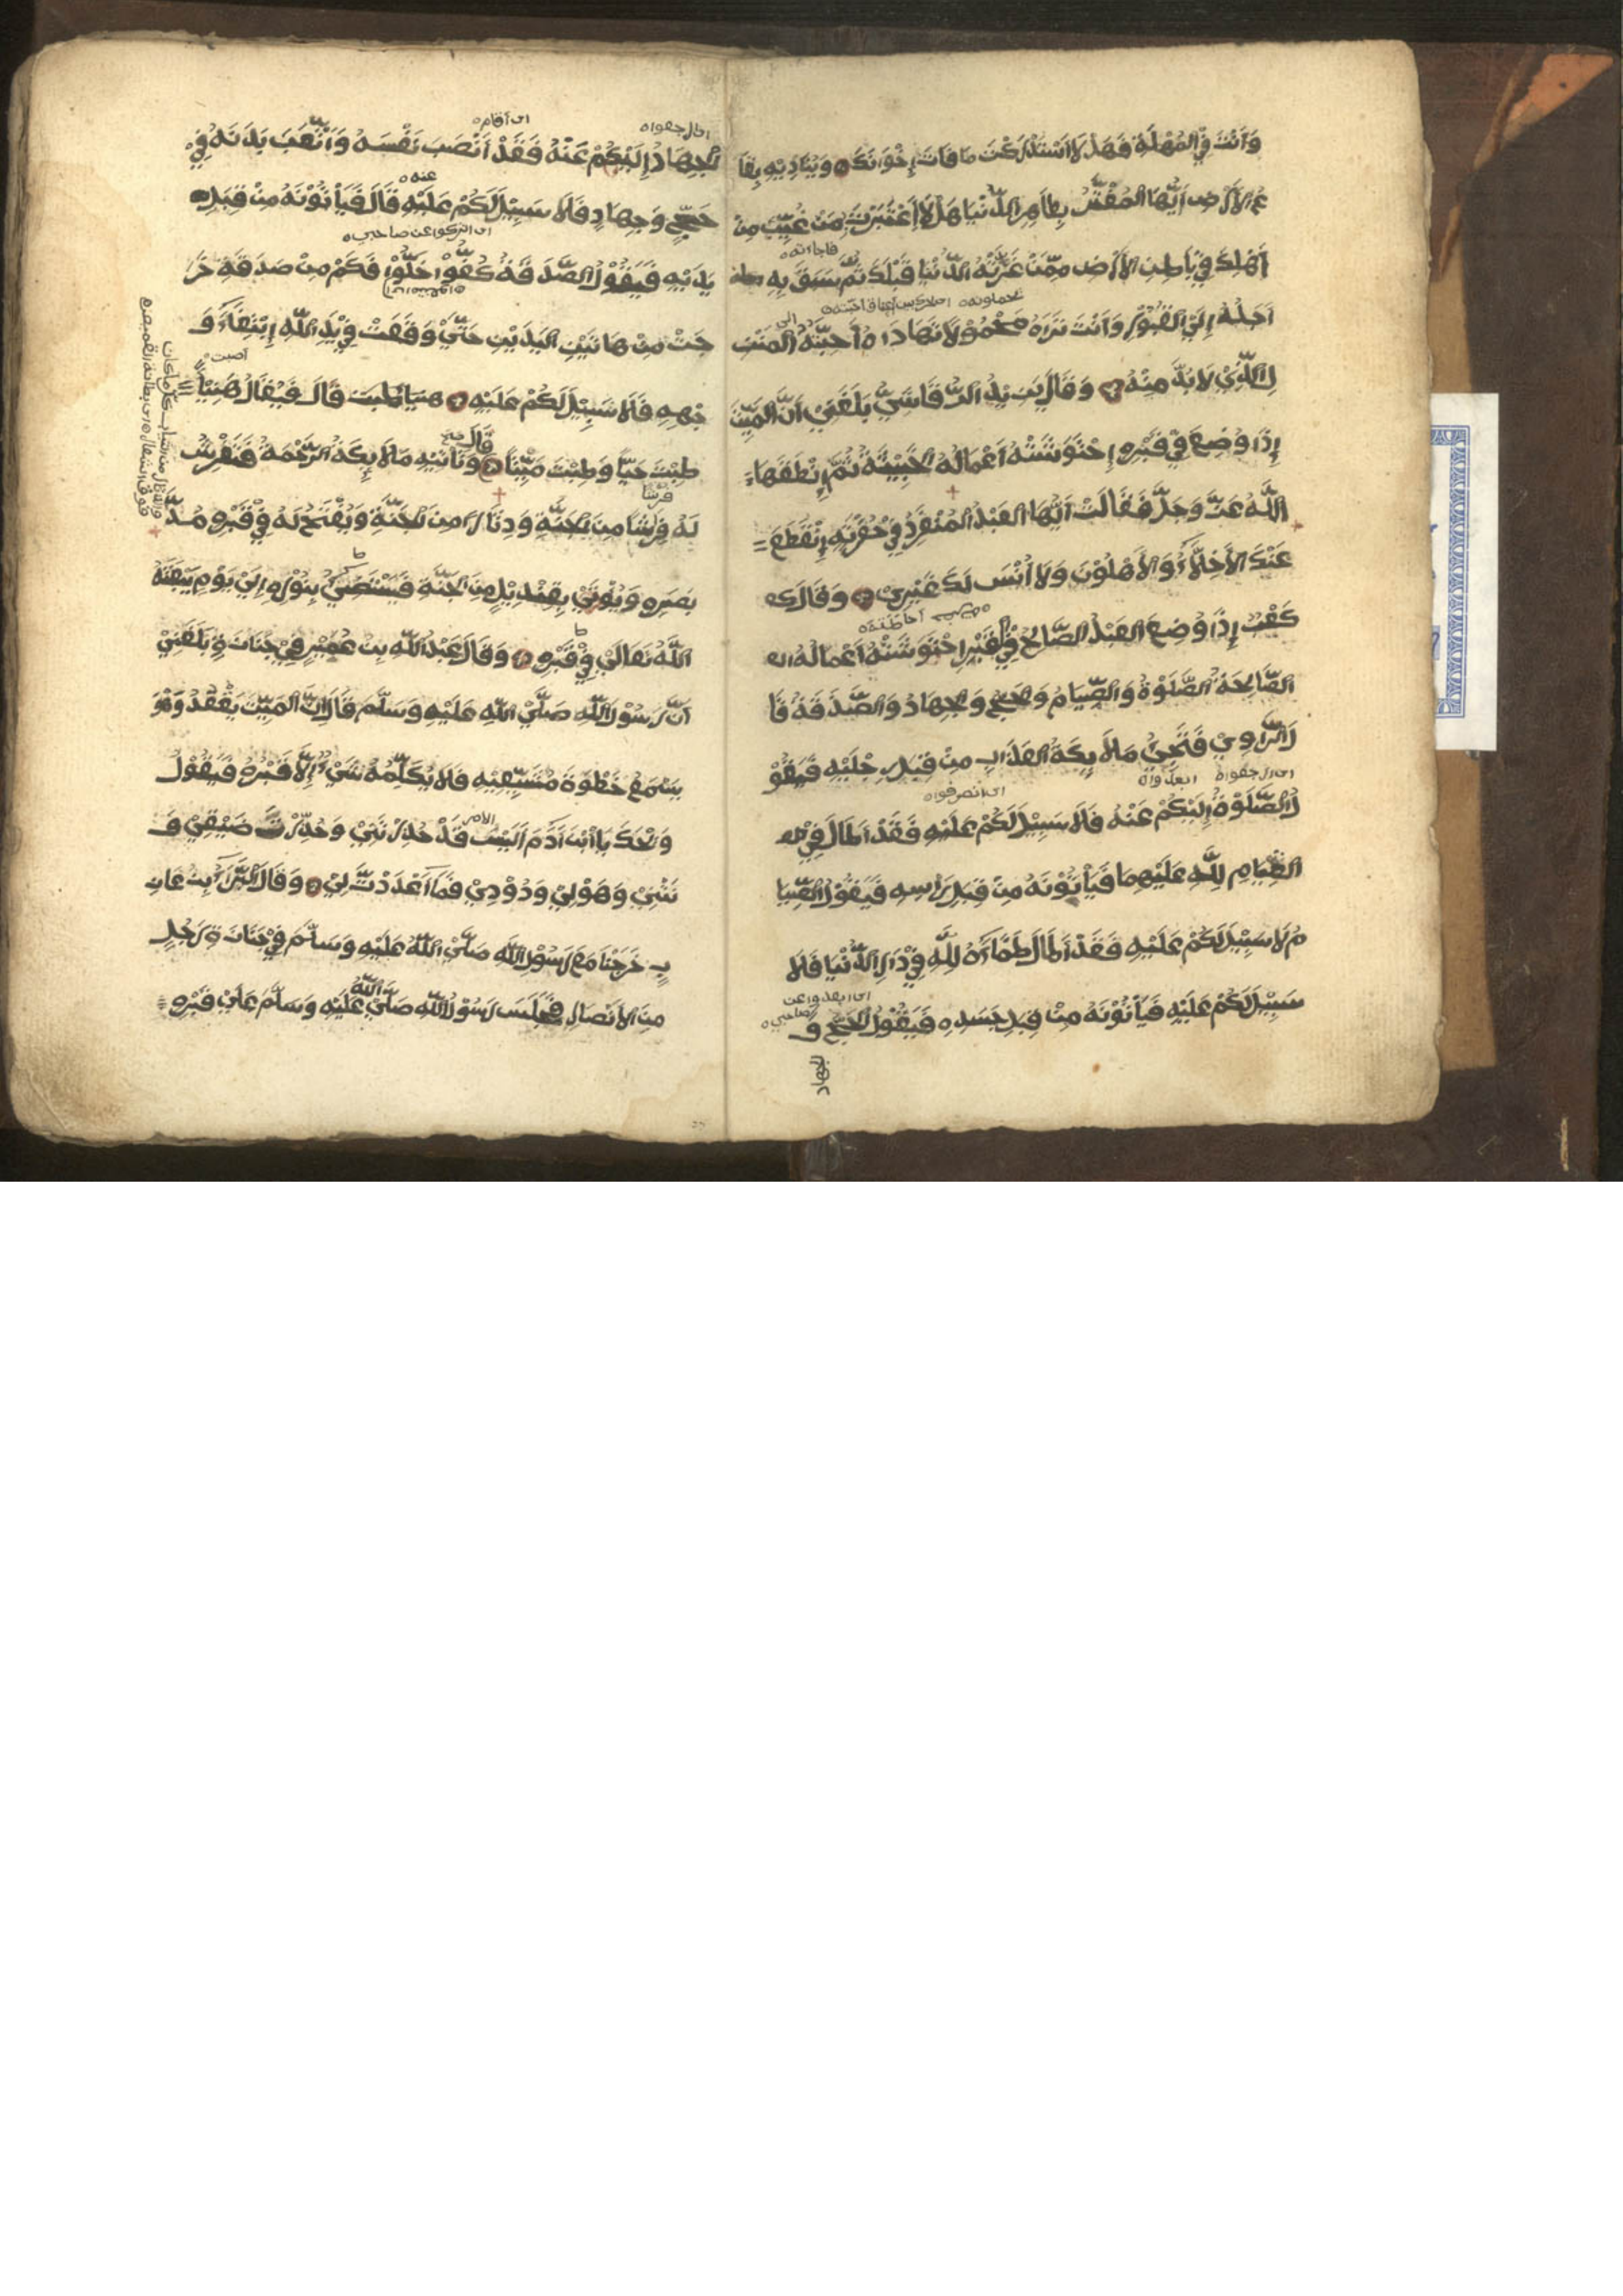 وَأَنْتَ فِي الْمُهْلَةِ فَهَلَّا اسْتَدْرَكْتَ مَا فَاتَ إِخْوَانَكَ وَيُنَادِيهِ بِقَا
عُ الْأَرْضِ أَيُّهَا الْمُغْتَرُّ بِظَاهِرِ الدُّنْيَا هَلَّا اعْتَبَرْتَ بِمَنْ غُيِّبَ مِنْ
فاجاءته
أَهْلِكَ فِي بَاطِنِ الْأَرْضِ مِمَّنْ غَرَّتْهُ الدُّنْيَا قَبْلَكَ ثُمَّ سَبَقَ بِهِ
يحملونه
أَجَلُهُ إِلَى الْقُبُورِ وَأَنْتَ تَرَاهُ مَحْمُولًا تَهَادَاهُ أَحِبَّتُهُ الْمَنْزِ
الى
لِ الَّذِي لَا بُدَّ مِنْهُ وَقَالَ يَزِيدُ الرَّقَاشِيُّ بَلَغَنِي أَنَّ الْمَيِّتَ
إِذَا وُضِعَ فِي قَبْرِهِ احْتَوَشَتْهُ أَعْمَالُهُ الْخَبِيثَةُ ثُمَّ أَنْطَقَهَا
اللَّهُ عَزَّ وَجَلَّ فَقَالَتْ أَيُّهَا الْعَبْدُ الْمُنْفَرِدُ فِي حُفْرَتِهِ انْقَطَعَ
عَنْكَ الْأَخِلَّاءُ وَالْأَهْلُونَ وَلَا أَنْسَ لَكَ غَيْرِي وَقَالَ كـ
احاطته
كَعْبٌ إِذَا وُضِعَ الْعَبْدُ الصَّالِحُ فِي الْقَبْرِ احْتَوَشَتْهُ أَعْمَالُهُ ال
الصَّالِحَةُ الصَّلَوٰةُ وَالصِّيَامُ وَالْحَجُّ وَالْجِهَادُ وَالصَّدَقَةُ قَا
لَ الرَّاوِي فَتَجِيُ مَلَائِكَةُ الْعَذَابِ مِنْ قِبَلِ رِجْلَيْهِ فَيَقُوْ
اى ارجعواه ابعدواه
اى انصرفواه
لُ الصَّلَوٰةُ إِلَيْكُمْ عَنْهُ فَلَا سَبِيْلَ لَكُمْ عَلَيْهِ فَقَدْ أَطَالَ فِيْ
الْقِيَامِ لِلَّهِ عَلَيْهِمَا فَيَأْتُوْنَهُ مِنْ قِبَلِ رَاسِهِ فَيَقُوْلُ الصِّيَا
مُ لَا سَبِيْلَ لَكُمْ عَلَيْهِ فَقَدْ أَطَالَ ظَمَاءَهُ لِلَّهِ فِيْ دَارِ الدُّنْيَا فَلَا
اى ابعدوا عن
صاحبى
سَبِيْلَ لَكُمْ عَلَيْهِ فَيَأْتُوْنَهُ مِنْ قِبَلِ جَسَدِهِ فَيَقُوْلُ الْحَجُّ وَ
الجهاد
ارجعواه
اى اقام
الْجِهَادُ إِلَيْكُمْ عَنْهُ فَقَدْ أَنْصَبَ نَفْسَهُ وَأَتْعَبَ بَدَنَهُ فِيْ
عنه
حَجٍّ وَجِهَادٍ فَلَا سَبِيْلَ لَكُمْ عَلَيْهِ قَالَ فَيَأْتُوْنَهُ مِنْ قِبَلِ
اى اتركوا عن صاحبى
يَدَيْهِ فَيَقُوْلُ الصَّدَقَةُ كُفُّوْا خَلُّوْا فَكَمْ مِنْ صَدَقَةٍ خَرَ
جَتْ مِنْ هَاتَيْنِ الْيَدَيْنِ حَتَّيْ وَقَعَتْ فِيْ يَدِ اللَّهِ ابْتِغَاءَ وَ
اصبت
جْهِهِ فَلَا سَبِيْلَ لَكُمْ عَلَيْهِ قَالَ فَيُقَالُ هَنِيْئًا
قَالَ صح
طِبْتَ حَيًّا وَطِبْتَ مَيِّتًا وَتَاتِيْهِ مَلَائِكَةُ الرَّحْمَةِ فَتَفْرِشُ
فرشا
لَهُ فِرَاشًا مِنَ الْجَنَّةِ وَدِثَارًا مِنَ الْجَنَّةِ وَيُفْتَحُ لَهُ فِيْ قَبْرِهِ مَدَّ
بَصَرِهِ وَيُوْتَيْ بِقِنْدِيْلٍ مِنَ الْجَنَّةِ فَيَسْتَضِيْئُ بِنُوْرِهِ اِلَيْ يَوْمِ يَبْعَثُهُ
اللَّهُ تَعَالَيْ فِيْ قَبْرِهِ وَقَالَ عَبْدُ اللَّهِ بْنُ عُمَيْرٍ فِيْ جَنَازَةٍ بَلَغَنِيْ
اَنَّ رَسُوْلَ اللَّهِ صَلَّيْ اللَّهُ عَلَيْهِ وَسَلَّمَ قَالَ اِنَّ الْمَيِّتَ يَقْعُدُ وَهُوَ
يَسْمَعُ خَطْوَةَ مُشَيِّعِيْهِ فَلَا يُكَلِّمُهُ شَيْءٌ اِلَّا قَبْرُهُ فَيَقُوْلُ
وَيْحَكَ يَا ابْنَ اَدَمَ اَلَيْسَ قَدْ حُذِّرْتَنِيْ وَحُذِّرْتَ ضَيْقِيْ وَ
نَتْنِيْ وَهَوْلِيْ وَدُوْدِيْ فَمَا اَعْدَدْتَ لِيْ وَقَالَ الْبَرَاءُ بْنُ عَازِ
بٍ خَرَجْنَا مَعَ رَسُوْلِ اللَّهِ صَلَّيْ اللَّهُ عَلَيْهِ وَسَلَّمَ فِيْ جَنَازَةِ رَجُلٍ
مِنَ الْاَنْصَارِ فَجَلَسَ رَسُوْلُ اللَّهِ صَلَّيْ اللَّهُ عَلَيْهِ وَسَلَّمَ عَلَيْ قَبْرِهِ